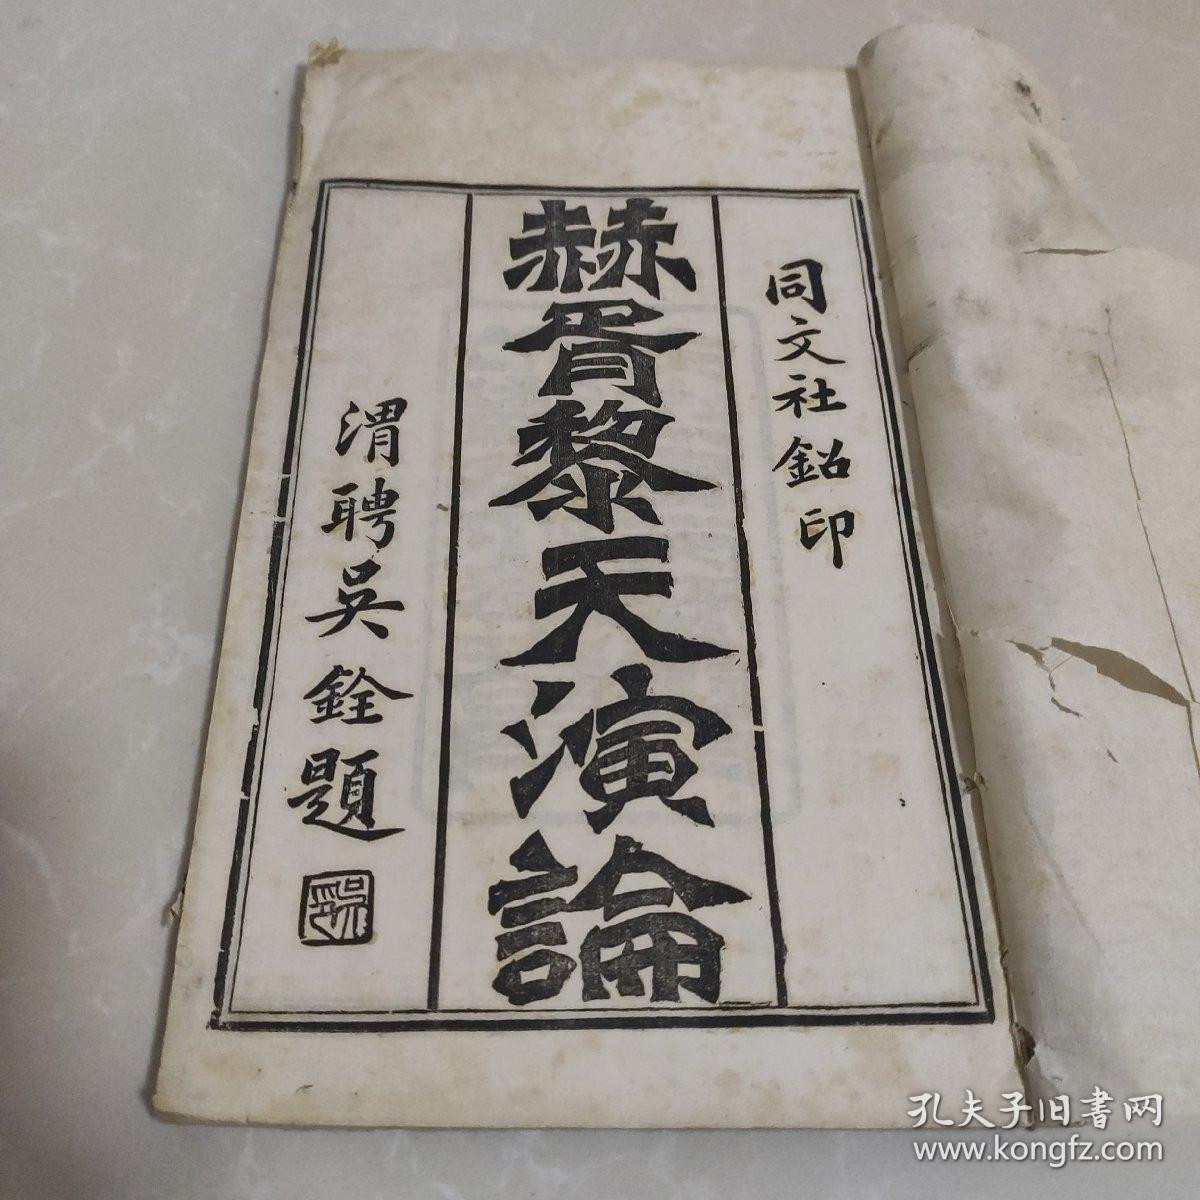 同文社鉛印
赫胥黎天演論
渭聘吳銓題
孔夫子旧書网
www.kongfz.com